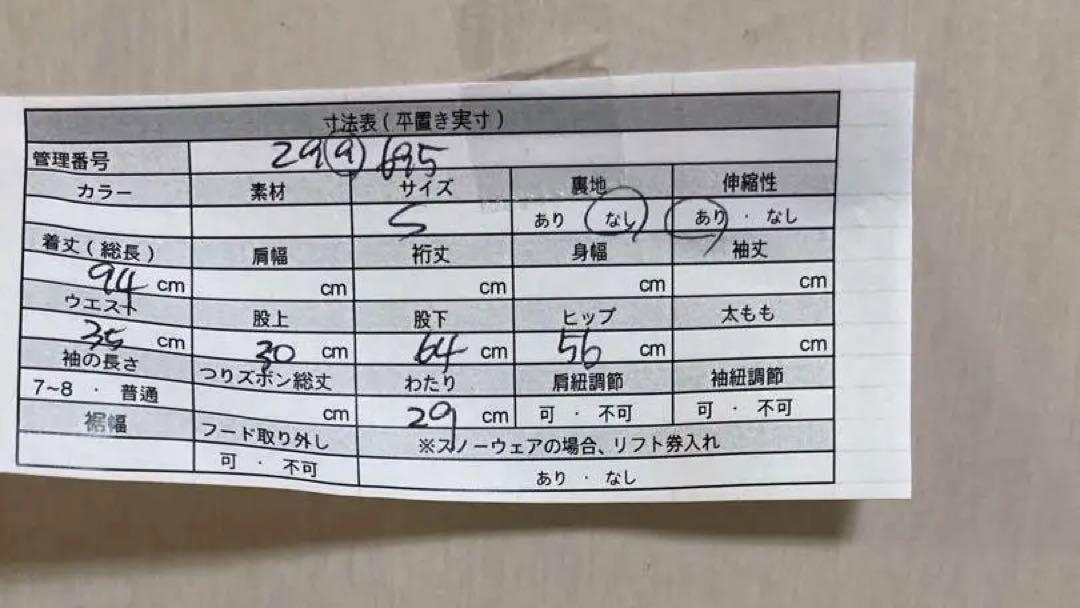 寸法表（平置き実寸）
管理番号 29⑨695
カラー 素材 サイズ 裏地 伸縮性
S あり なし あり ・ なし
着丈（総長） 肩幅 裄丈 身幅 袖丈
94 cm cm cm cm cm
ウエスト 股上 股下 ヒップ 太もも
35 cm 30 cm 64 cm 56 cm cm
袖の長さ つりズボン総丈 わたり 肩紐調節 袖紐調節
7~8 ・ 普通 cm 29 cm 可 ・ 不可 可 ・ 不可
裾幅 フード取り外し ※スノーウェアの場合、リフト券入れ
可 ・ 不可 あり ・ なし